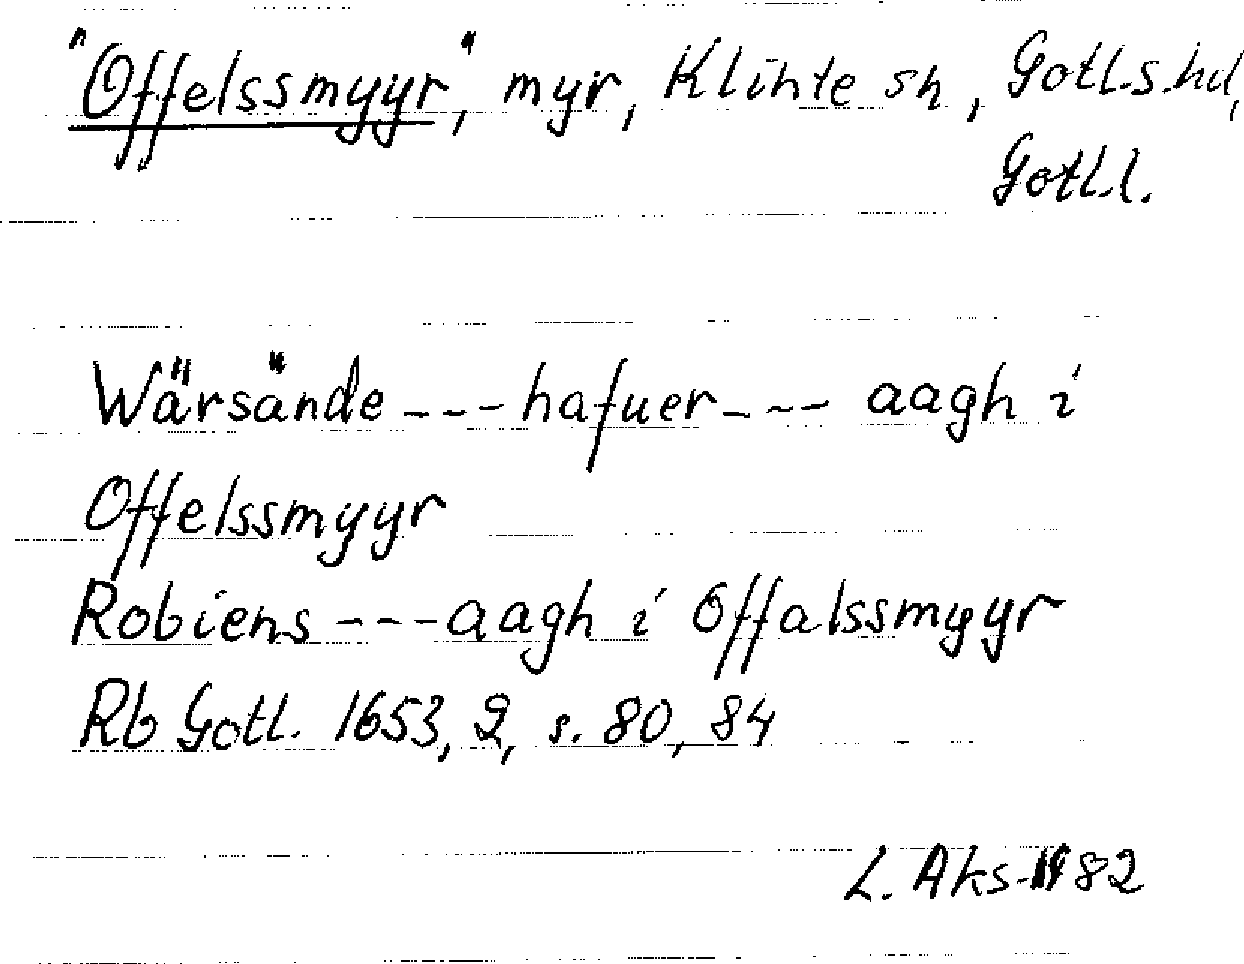 "Offelssmyyr", myr, Klinte sn, Gotl.s.hd,
Gotl.l.
Wärsände --- hafuer --- aagh i
Offelssmyyr
Robiens --- aagh i Offalssmyyr
Rb Gotl. 1653, 2, s. 80, 84
L. Aks- 1982